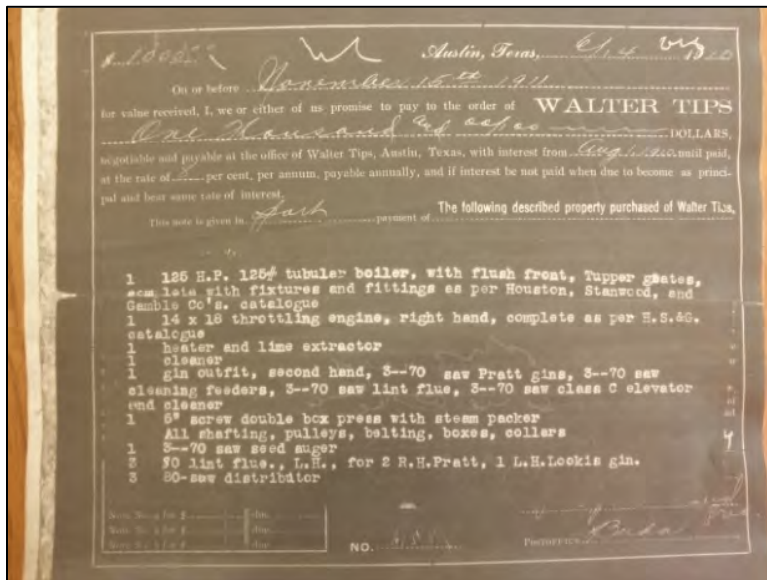 $ 1000
Austin, Texas, 6/14 1910
On or before November 15th 1911
for value received, I, we or either of us promise to pay to the order of WALTER TIPS
One thousand and 00/00 DOLLARS,
negotiable and payable at the office of Walter Tips, Austin, Texas, with interest from Aug 1, 1910 until paid,
at the rate of 8 per cent, per annum, payable annually, and if interest be not paid when due to become as princi-
pal and bear same rate of interest.
This note is given in part payment of The following described property purchased of Walter Tips,
1 125 H.P. 125# tubular boiler, with flush front, Tupper grates,
with fixtures and fittings as per Houston, Stanwood, and
Gamble Co's. catalogue
1 14 x 18 throttling engine, right hand, complete as per H.S.&G.
catalogue
1 heater and lime extractor
1 cleaner
1 gin outfit, second hand, 3--70 saw Pratt gins, 3--70 saw
cleaning feeders, 3--70 saw lint flue, 3--70 saw class C elevator
and cleaner
1 5" screw double box press with steam packer
All shafting, pulleys, belting, boxes, collars
1 3--70 saw seed auger
3 80 lint flue., L.H., for 2 R.H.Pratt, 1 L.H.Lookis gin.
3 80-saw distributor
Note No. for $ due
Note No. for $ due
Note No. for $ due
NO.
POSTOFFICE Buda